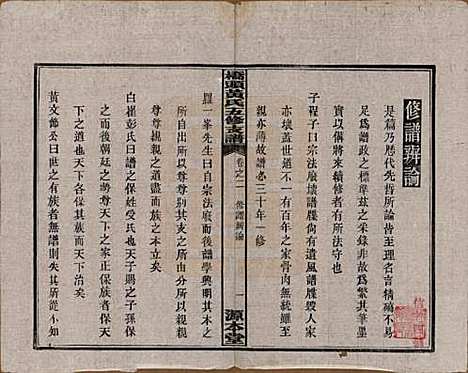 修譜羣論
是篇乃歷代先哲所論皆至理名言精確不易
足是為譜政之標準茲之采錄非故爲繁其筆墨
實以俾將來續修者有所法守也
子程子曰宗法廢壞譜牒尚有遺風譜牒毀人家
亦壞蓋世道不一有百年之家骨肉無統雖至
親亦薄故譜必三十年一修
橋頭黃氏五修支譜
卷之一
修譜羣論
一
源本堂
羅一峯先生曰自宗法廢而後譜學興明其本之
所自出則尊尊之道存焉由分所以親親
親親之道盡而族治矣
白崔彭氏曰譜姓受氏也天子賜之子孫保
之而後朝廷尊於上有家正保族者保天
下之道也有族之本而天下治矣
黃文節公曰世之有族者無譜則失其所從小知